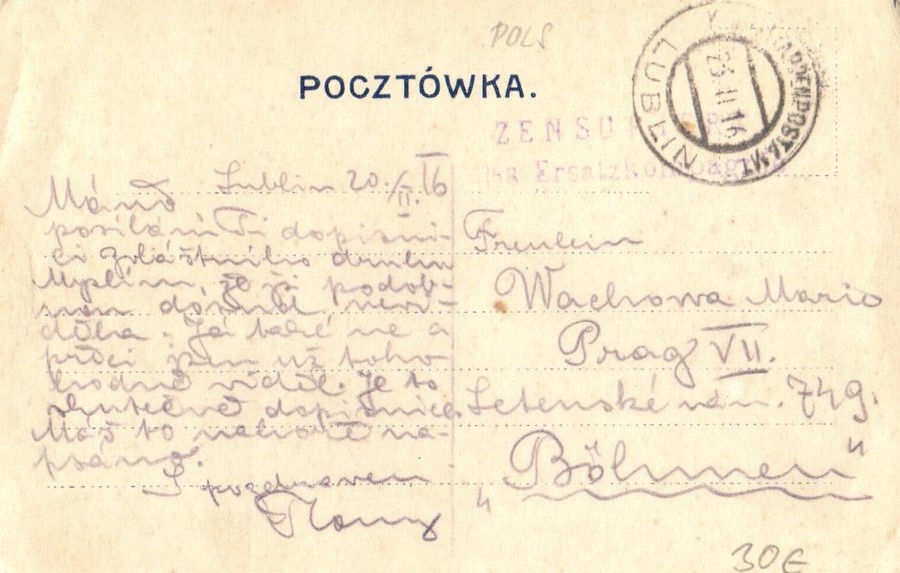 POLS
POCZTÓWKA.
LUBLIN
23. II 16
ETAPPENPOSTAMT
ZENSU
Ersatzkompag
Lublin 20./II. 16
Máňo
posílám Ti dopisni-
ci zvláštního druhu
Myslím, že ji podob-
nou dosud nevi-
děla. Já také ne a
přeci jsem už toho
hodně viděl. Je to
skutečně dopisnice
Máš to nahoře na-
psáno.
S pozdravem
Fräulein
Wachowa Marie
Prag VII.
Letenské nám. 749.
„Böhmen"
30€